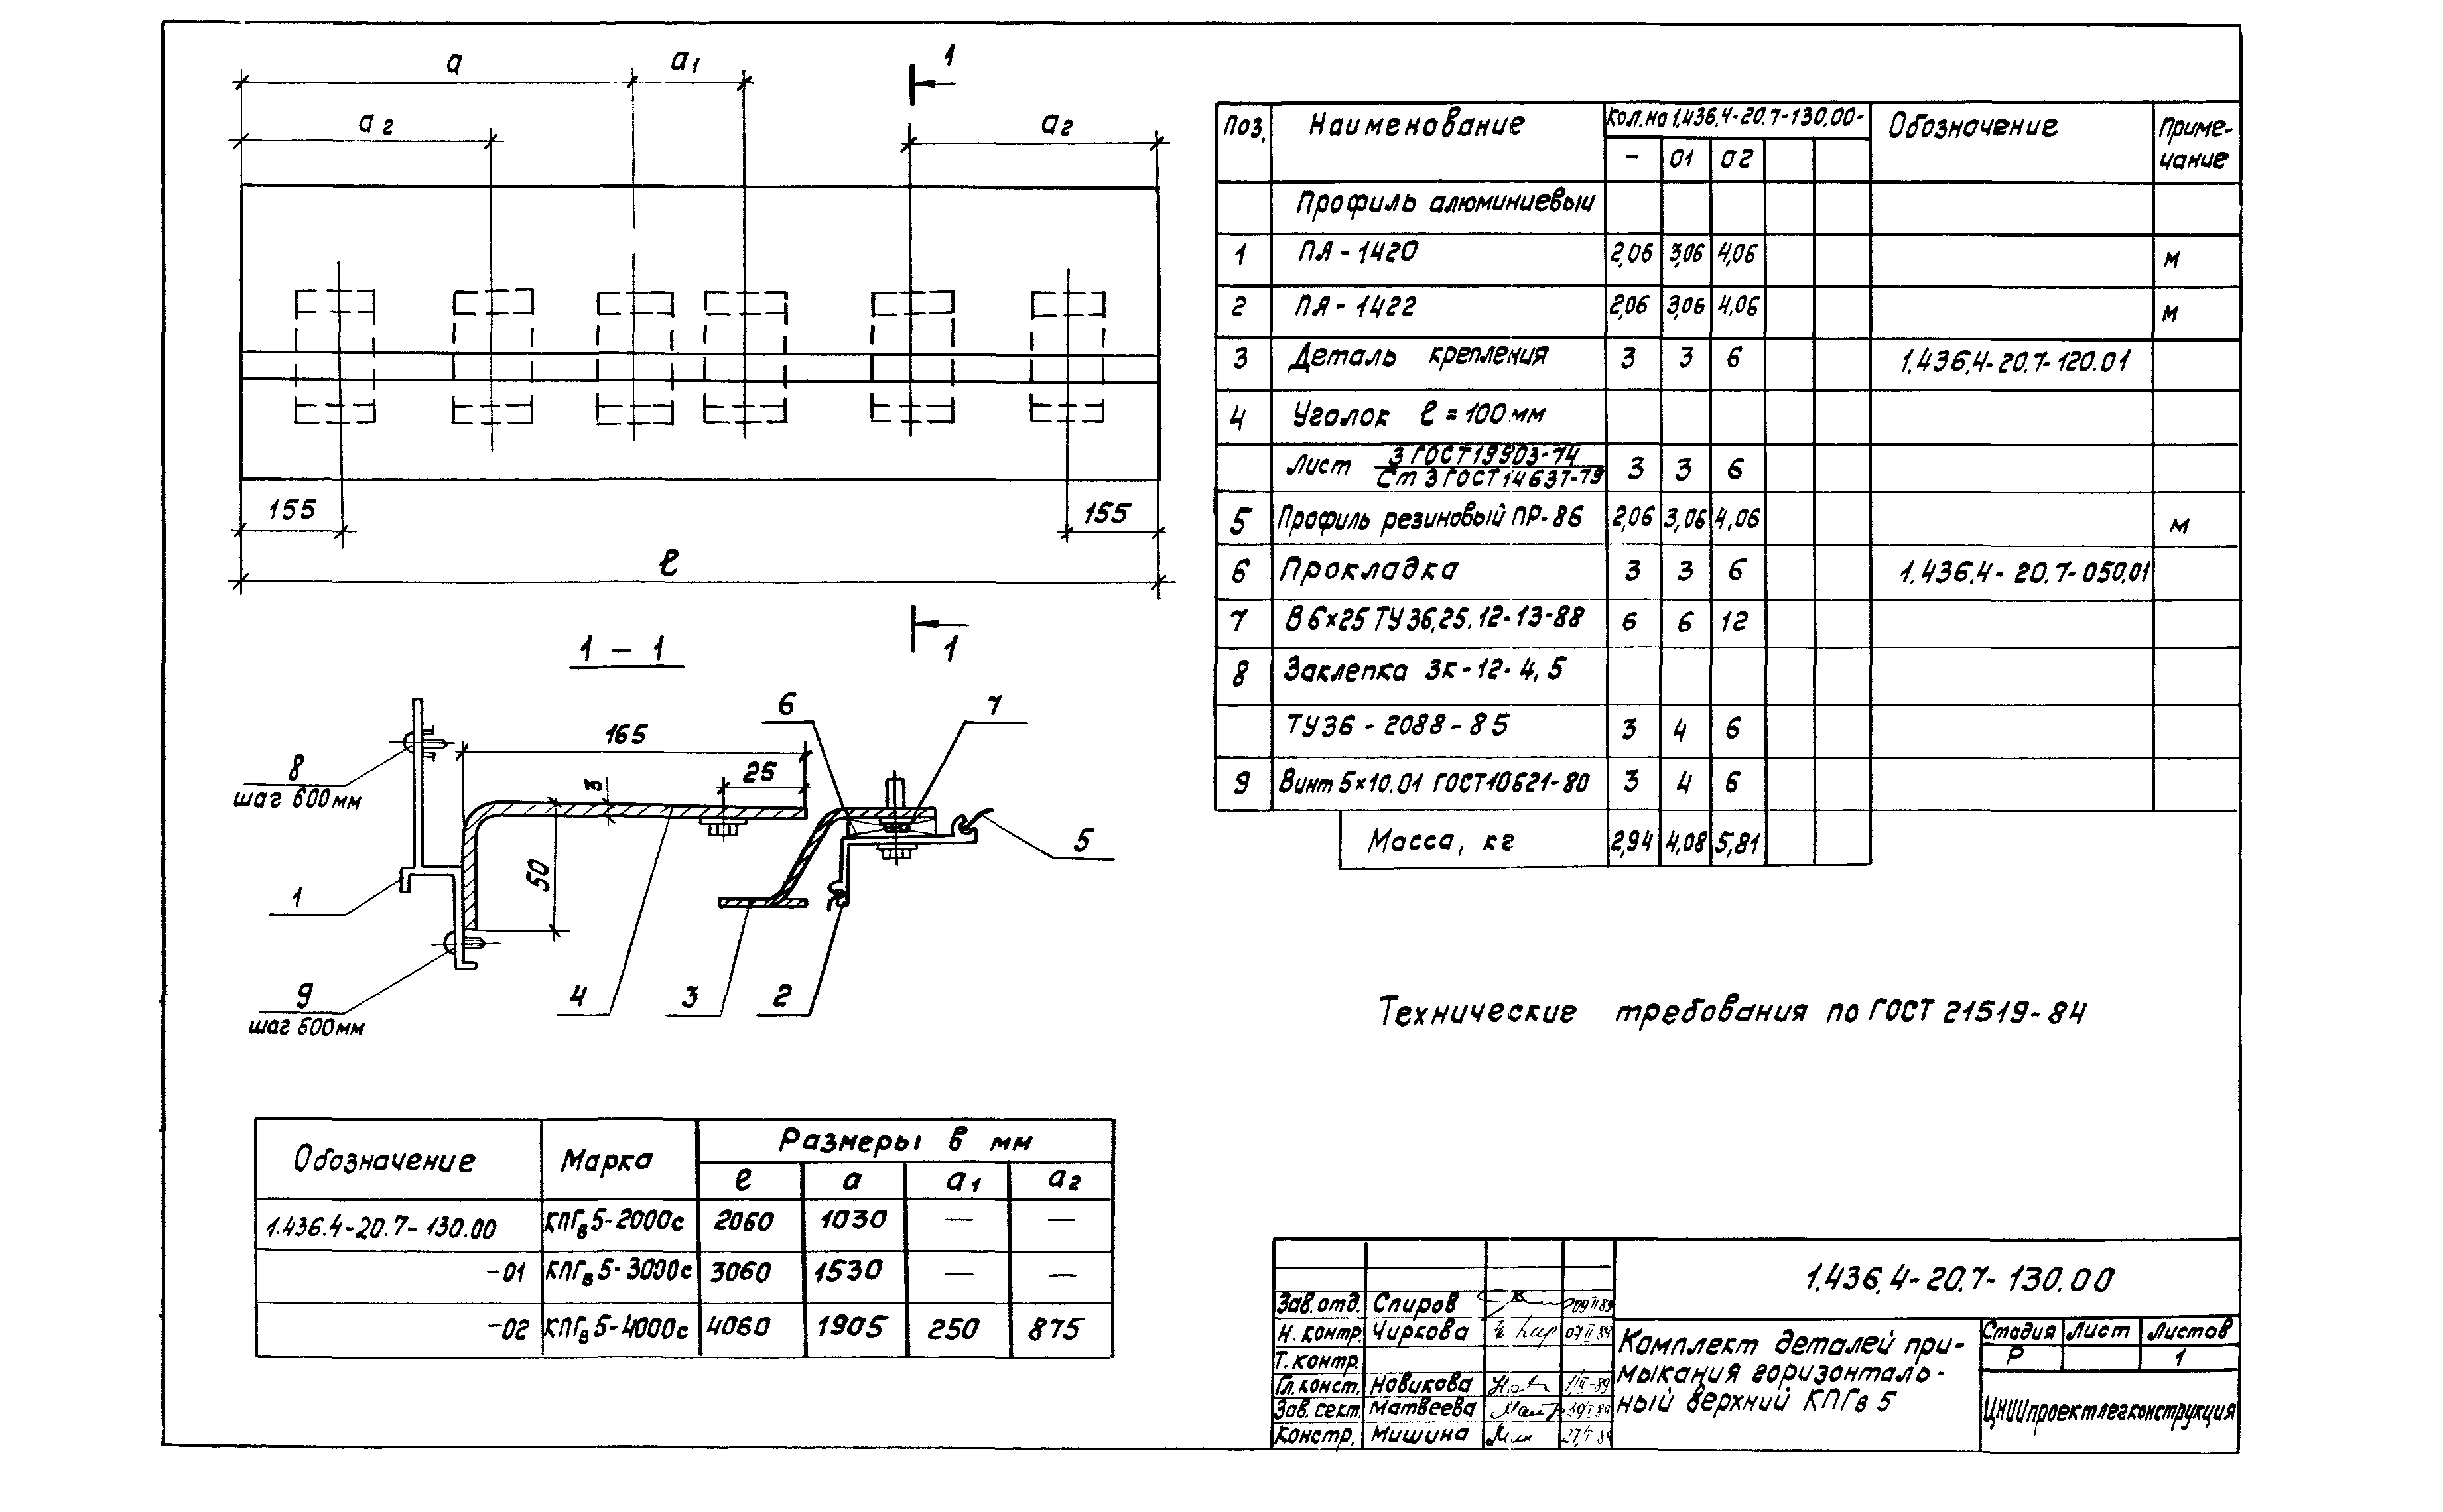 а
а1
1
а2
а2
155
155
ℓ
1
1 - 1
6
7
165
8
шаг 600мм
3
25
5
50
1
9
шаг 600мм
4
3
2
Поз. Наименование Кол. на 1.436.4-20.7-130.00- Обозначение Приме-
чание
- 01 02
Профиль алюминиевый
1 ПА-1420 2,06 3,06 4,06 м
2 ПА-1422 2,06 3,06 4,06 м
3 Деталь крепления 3 3 6 1.436.4-20.7-120.01
4 Уголок ℓ=100мм
Лист 3 ГОСТ 19903-74
Ст 3 ГОСТ 14637-79 3 3 6
5 Профиль резиновый ПР-86 2,06 3,06 4,06 м
6 Прокладка 3 3 6 1.436.4-20.7-050.01
7 В6×25 ТУ36.25.12-13-88 6 6 12
8 Заклепка ЗК-12-4,5
ТУ36-2088-85 3 4 6
9 Винт 5×10.01 ГОСТ10621-80 3 4 6
Масса, кг 2,94 4,08 5,81
Технические требования по ГОСТ 21519-84
Обозначение Марка Размеры в мм
ℓ а а1 а2
1.436.4-20.7-130.00 КПГв5-2000с 2060 1030 — —
-01 КПГв5-3000с 3060 1530 — —
-02 КПГв5-4000с 4060 1905 250 875
1.436.4-20.7-130.00
Зав. отд. Спиров
Н. контр. Чиркова
Т. контр.
Гл. конст. Новикова
Зав. сект. Матвеева
Констр. Мишина
Комплект деталей при-
мыкания горизонталь-
ный верхний КПГв 5
Стадия Лист Листов
Р 1
ЦНИИпроектлегконструкция